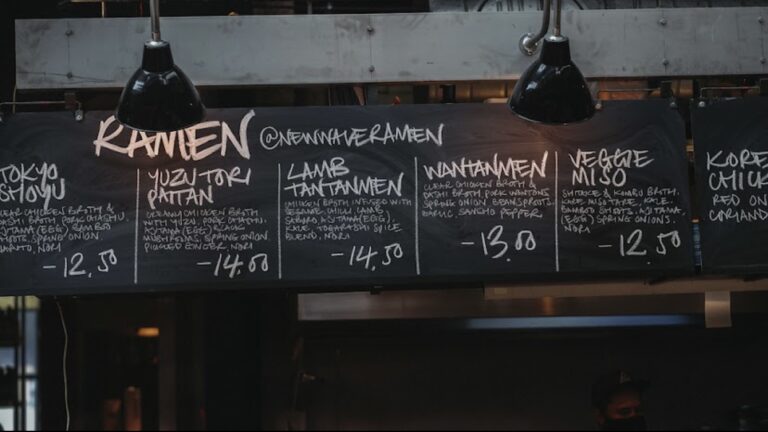 RAMEN @NEWWAVERAMEN
TOKYO
SHOYU
CHICKEN BROTH &
DASHI BROTH, PORK CHASHU,
AJITAMA (EGG) BAMBOO
SHOOTS, SPRING ONION,
NORI
-12.50
YUZU TORI
PAITAN
CREAMY CHICKEN BROTH
WITH YUZU, CHASHU,
AJITAMA (EGG), BLACK
MUSHROOMS, SPRING ONION,
PICKLED GINGER, NORI
-14.00
LAMB
TANTANMEN
CHICKEN BROTH INFUSED WITH
SESAME, CHILLI LAMB,
AJITAMA (EGG),
KALE, TOGARASHI SPICE
BLEND, NORI
-14.50
WANTANMEN
CLEAR CHICKEN BROTH &
DASHI BROTH, PORK WANTONS,
SPRING ONION, BEANSPROUTS,
GARLIC, SANSHO PEPPER.
-13.00
VEGGIE
MISO
SHIITAKE & KOMBU BROTH,
MISO TARE, KALE,
BAMBOO SHOOTS, AJITAMA
(EGG) SPRING ONIONS,
NORI
-12.50
KORE
CHICK
RED ON
CORIAND